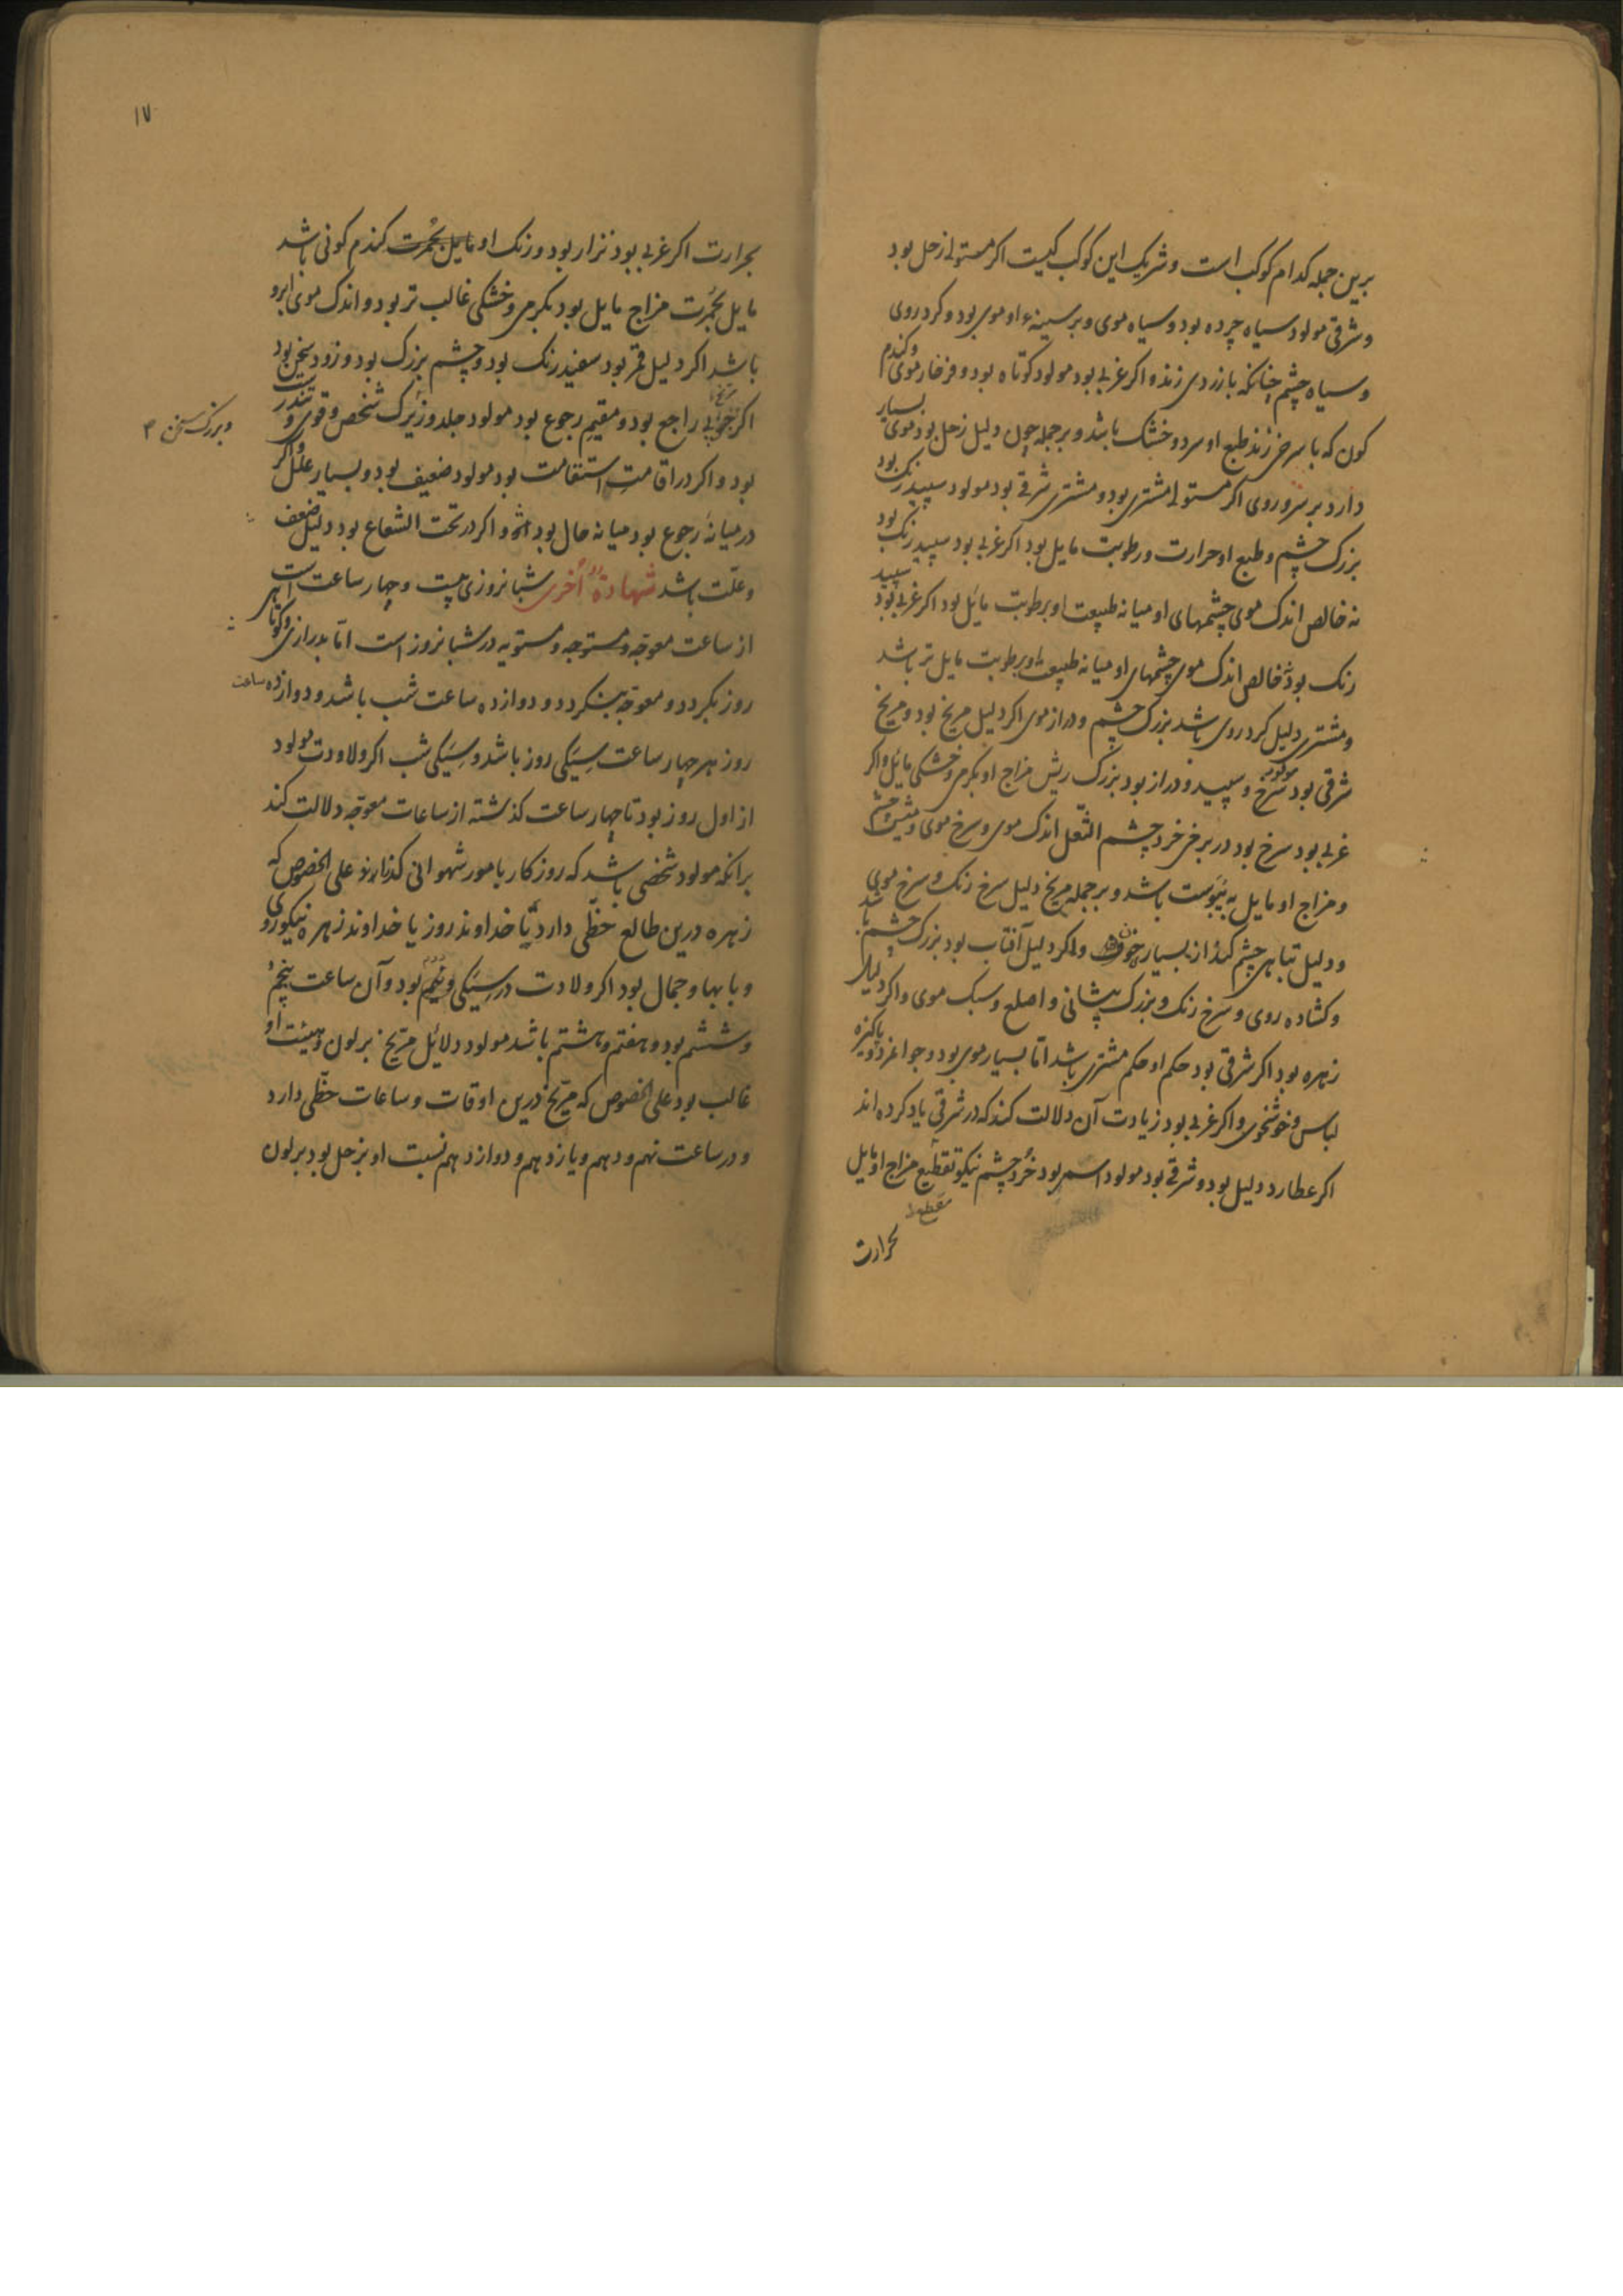 برین جمله کدام کوکب است و شریک این کوکب کیست اکر مستولی زحل بود
و شرقی مولود سیاه چرده بود و سیاه موی و بر سینهٔ او موی بود و کرد روی
و سیاه چشم چنانکه بازردی زند و اکر غربی بود مولود کوتاه بود و فرخار موی و کندم
کون که با سرخی زند طبع او سرد و خشک باشد و بر جمله چون دلیل زحل بود موی بسیار
دارد بر سر و روی اکر مستولی مشتری بود و مشتری شرقی بود مولود سپید رنک بود
بزرک چشم و طبع او حرارت و رطوبت مایل بود اکر غربی بود سپید رنک بود
نه خالص اندک موی چشمهای او میانه طبیعت او برطوبت مائل بود اکر غربی بود سپید
رنک بود نه خالص اندک موی چشمهای او میانه طبیعت او برطوبت مایل تر باشد
و مشتری دلیل کرد روی باشد بزرک چشم و دراز موی اکر دلیل مریخ بود و مریخ
شرقی بود مولود سرخ و سپید و دراز بود بزرک ریش مزاج او بکرمی و خشکی مائل و اکر
غربی بود سرخ بود در برخی خرد چشم اندک موی و سرخ موی
و مزاج او مایل به یبوست باشد و بر جمله مریخ دلیل سرخ رنک و سرخ موی
و دلیل تباهی چشم کند از بسیار واکر دلیل آفتاب بود بزرک چشم باشد
و کشاده روی و سرخ رنک و بزرک پیشانی و اصلع و سبک موی و اکر دلیل
زهره بود اکر شرقی بود حکم او حکم مشتری باشد امّا بسیار موی بود و جوامرد و پاکیزه
لباس و خوشخوی و اکر غربی بود زیادت آن دلالت کند که در شرقی یاد کرده اند
اکر عطارد دلیل بود و شرقی بود مولود اسمر بود خُرد چشم نیکو تقطیع مزاج او مایل
بحرارت
۱۷
بحرارت اکر غربی بود نزار بود و رنک او مایل بحُمرت کندم کونی باشد
مایل بحُمرت مزاج مایل بود بکرمی و خشکی غالب تر بود و اندک موی ابرو
باشد اکر دلیل قمر بود سفید رنک بود و چشم بزرک بود و زود سخن بود
اکر راجع بود و مقیم رجوع بود مولود جلد و زیرک شخص و قوی و تندرست
و بزرک سخن
بود و اکر در اقامتِ استقامت بود مولود ضعیف بود و بسیار علل و اکر
در میانهٔ رجوع بود میانه حال بود و اکر در تحت الشعاع بود دلیل ضعف
و علّت باشد شهادةٌ اُخری شبانروزی بیست و چهار ساعت است
از ساعت معوّجه و مستوجه و مستویه در شبانروز است امّا بدرازی و کوتاهی
روز بکردد و معوّجه بنکردد و دوازده ساعت شب باشد و دوازده ساعت
روز هر چهار ساعت سِیَکی روز باشد و سِیَکی شب اکر ولاودت مولود
از اول روز بود تا چهار ساعت کذشته از ساعات معوّجه دلالت کند
برانکه مولود شخصی باشد که روزکار بامور شهوانی کذارند علی الخصوص که
زهره درین طالع حظّی دارد یا خداوند روز یا خداوند زهره نیکوروی
و با بها و جمال بود اکر ولادت در سِیَکی دُیُم بود و آن ساعت پنجم
و ششم بود و هفتم و هشتم باشد مولود دلائل مریخ بر لون و هیئت او
غالب بود علی الخصوص که مریخ درین اوقات و ساعات حظّی دارد
و در ساعت نهم و دهم و یازدهم و دوازدهم نسبت او بزحل بود بر لون